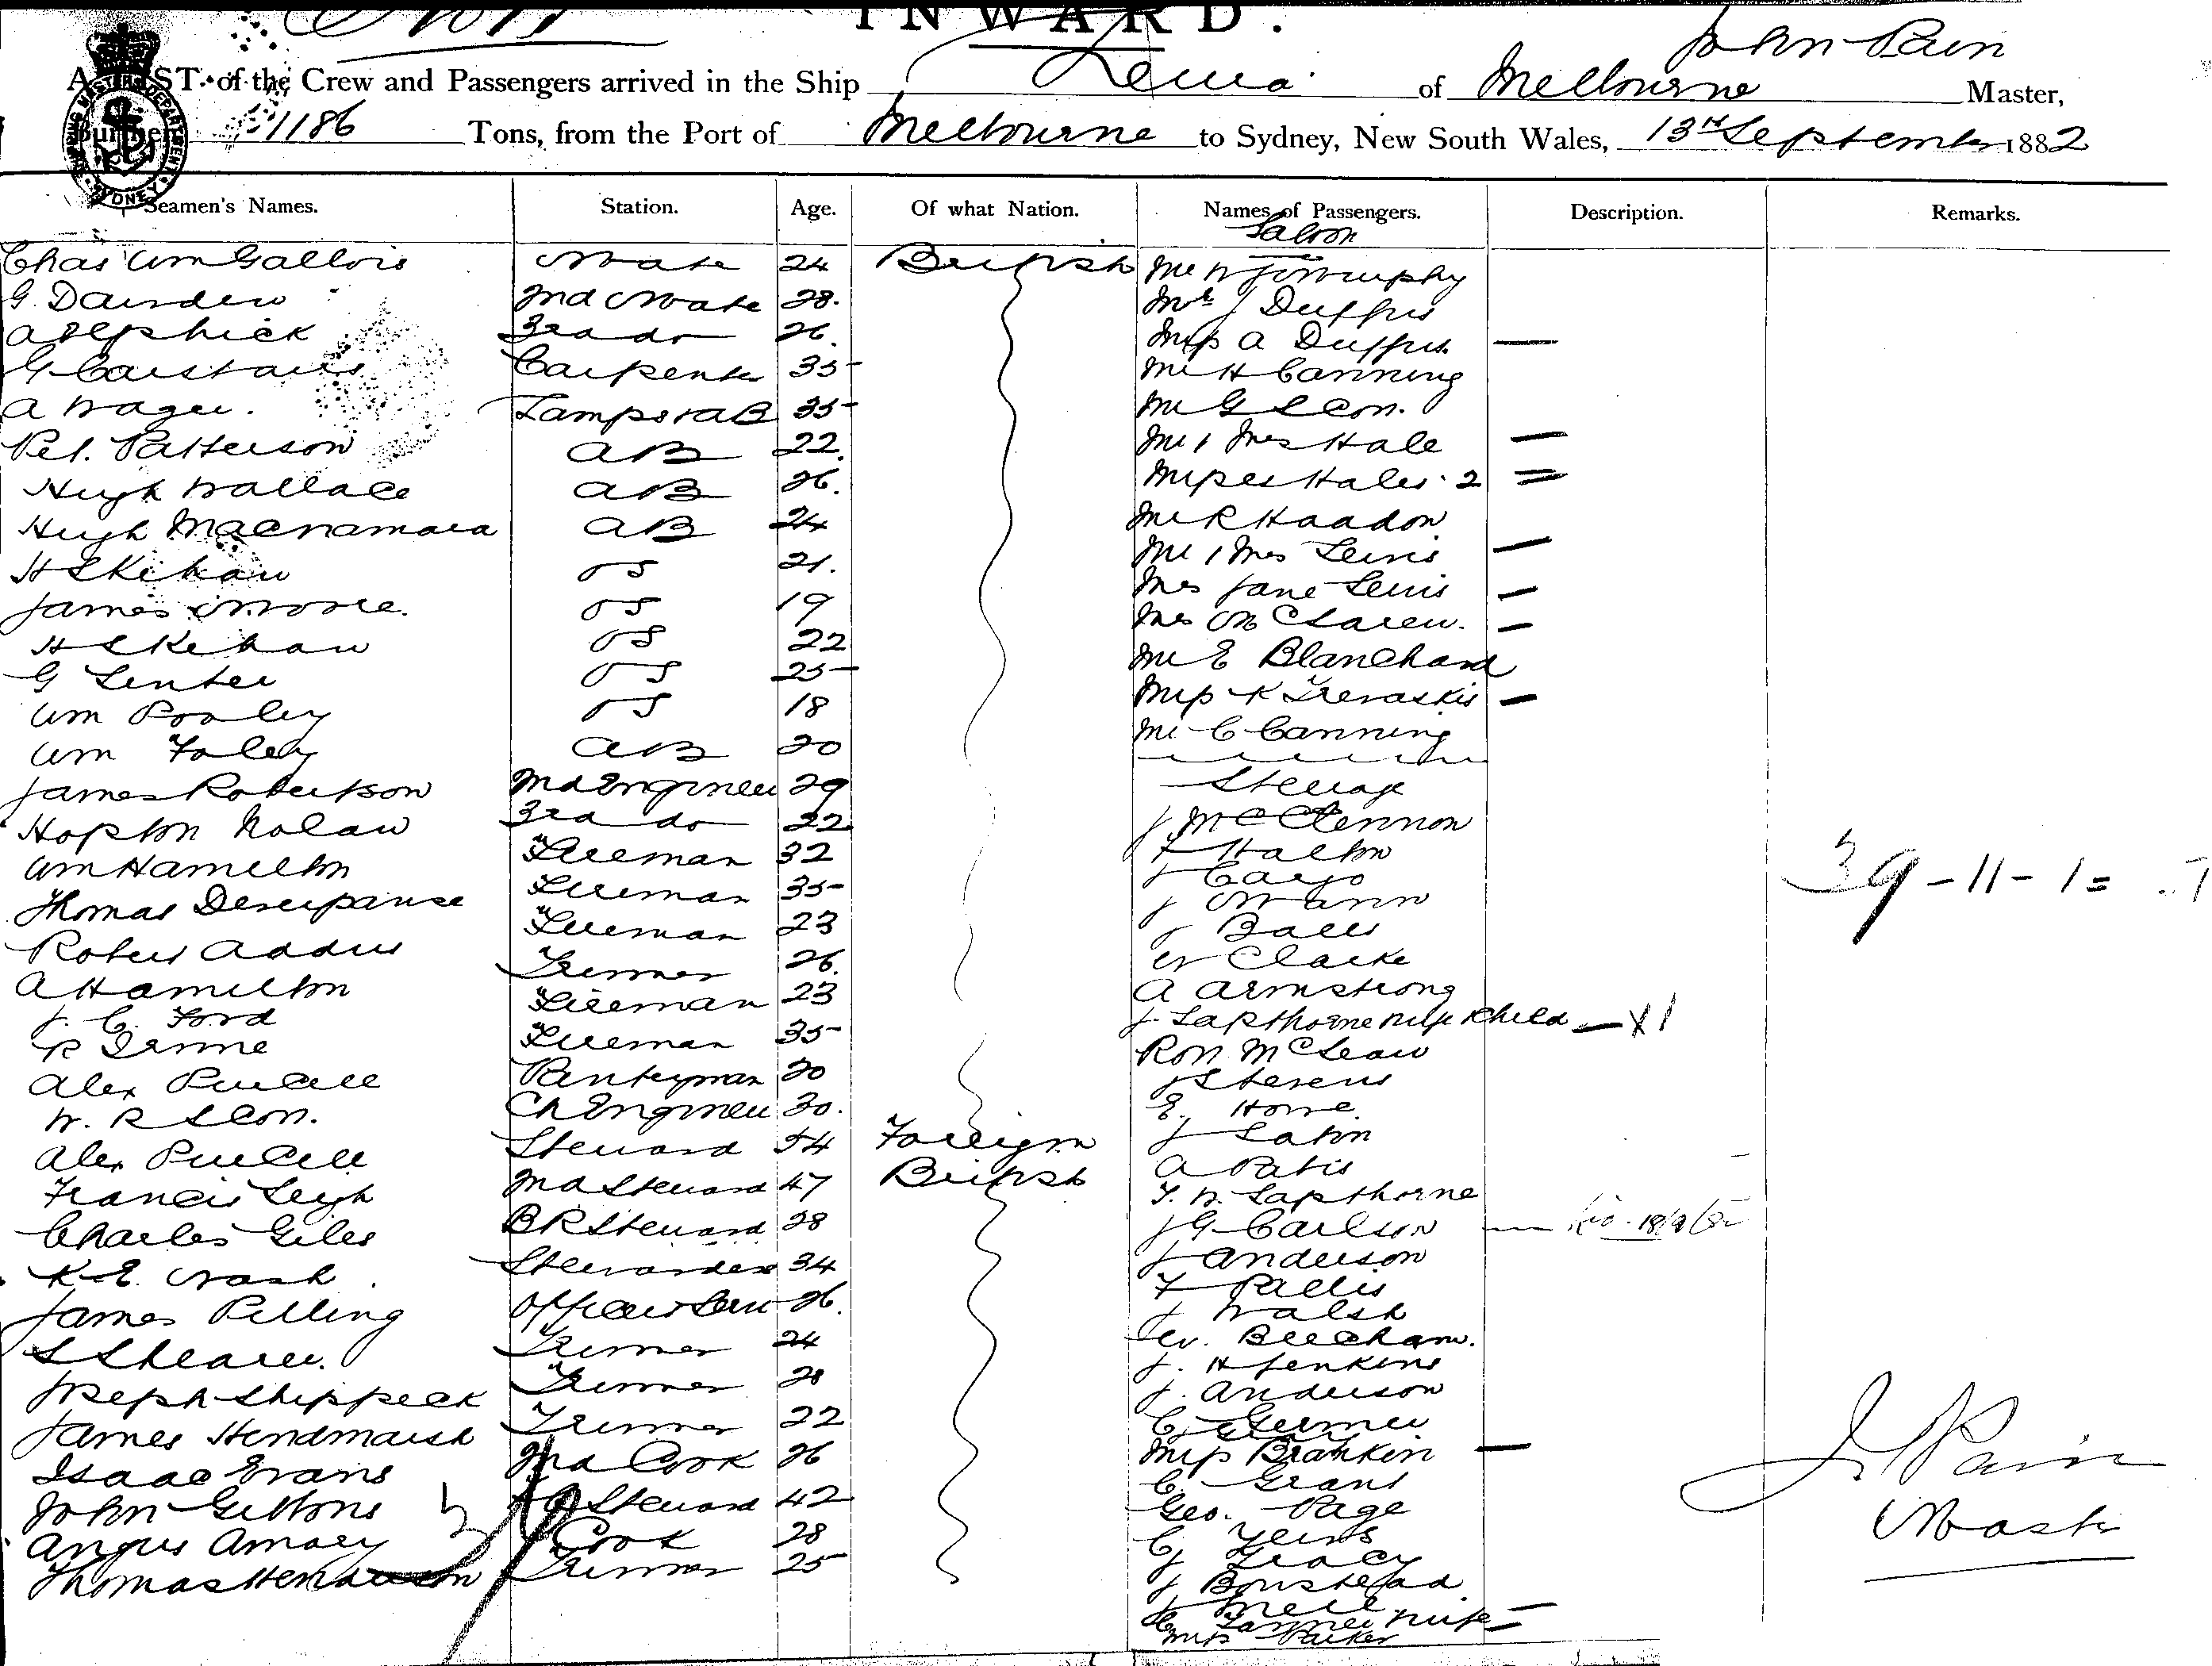 INWARD.
John Pain
A LIST of the Crew and Passengers arrived in the Ship of Melbourne Master,
Burthen 1186 Tons, from the Port of Melbourne to Sydney, New South Wales, 13th September 1882
Seamen's Names. Station. Age. Of what Nation. Names of Passengers. Description. Remarks.
Saloon
Chas Wm Gallois Mate 24 British Mr W J Murphy
G. Darsden 2nd Mate 28. Mr J Duffus
A Elphick 3rd do 26. Miss A Duffus —
G Carstairs Carpenter 35 Mr H Canning
A Wager. Lamps & AB 35 Mr G S Con.
Pet. Patterson AB 22. Mr & Mrs Hale —
Hugh Wallace AB 26. Misses Hales. 2 =
Hugh Macnamara AB 24 Mr R Haadon
H Skehan OS 21. Mr & Mrs Lewis —
James Moore. OS 19 Mrs Jane Lewis —
H Skehan OS 22 Mrs McLaren. —
G OS 25 Mr E Blanchard
Wm Pooley OS 18 Miss K Trevaskis —
Wm Foley AB 20 Mr C Canning
James Robertson 2nd Engineer 29 Steerage
Hopton Nolan 3rd do 22 J McClennon
Wm Hamilton Fireman 32 F Halton
Thomas Fireman 35 J Cargo
Robert Addis Fireman 23 J Mann
A Hamilton Trimmer 26. J Bales
J. C. Ford Fireman 23 W Clarke
R Fireman 35 A Armstrong
Alex Purcell Pantryman 20 J Lapthorne wife & child — x 1
W. R Scon. Ch Engineer 30. Ron McLean
Alex Purcell Steward 54 Foreign J Stevens
Francis Leigh 2nd Steward 47 British E. Howe
Charles Giles BR Steward 28 J Eaton
K. E. Nash Stewardess 34 A Patis
James Pilling Officers Serv 26. T. W. Lapthorne
S Shearer. Trimmer 24 J G Carlson — 18/9/82
Joseph Shippeck Trimmer 28 J Anderson
James Hindmarsh Trimmer 22 F Pallis
Isaac Evans 2nd Cook 26 J Walsh
John Gibbons Steward 42 W. Beecham.
Angus Amoey Cook 28 J. H Jenkins
Thomas Henderson Trimmer 25 J. Anderson
C
Miss Brankin —
C. Grant
Geo. Page
C Yeins
J Tracy
J Boustead
J Neil
C Farmer wife —
Miss Parker
39 - 11 - 1 =
J Pain
Master